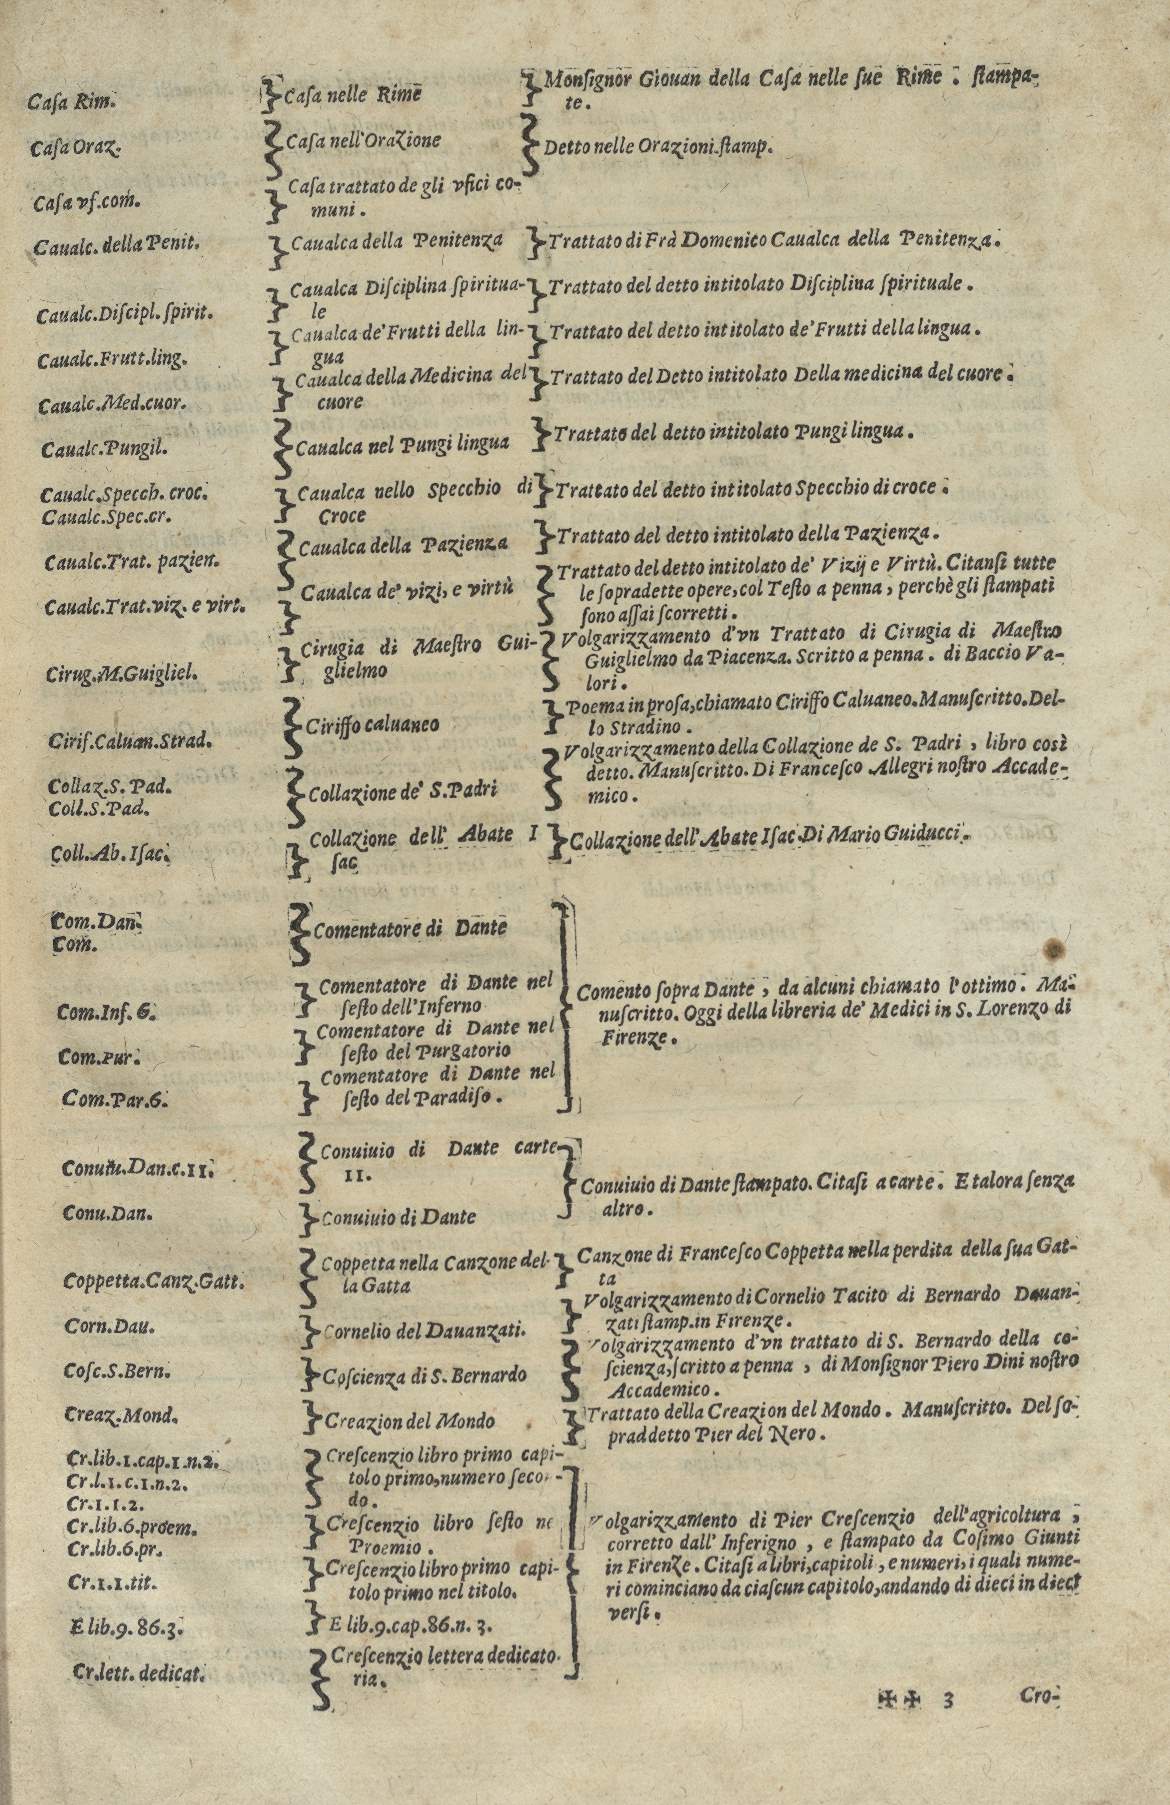 Caſa Rim.
Caſa nelle Rime
Monſignor Giouan della Caſa nelle ſue Rime. ſtampa-
te.
Caſa Oraz.
Caſa nell'Orazione
Detto nelle Orazioni.ſtamp.
Caſa vf.com.
Caſa trattato de gli vfici co-
muni.
Caualc. della Penit.
Caualca della Penitenza
Trattato di Frà Domenico Caualca della Penitenza.
Caualc.Diſcipl.ſpirit.
Caualca Diſciplina ſpiritua-
le
Trattato del detto intitolato Diſciplina ſpirituale.
Caualc.Frutt.ling.
Caualca de' Frutti della lin-
gua
Trattato del detto intitolato de' Frutti della lingua.
Caualc.Med.cuor.
Caualca della Medicina del
cuore
Trattato del Detto intitolato Della medicina del cuore.
Caualc.Pungil.
Caualca nel Pungi lingua
Trattato del detto intitolato Pungi lingua.
Caualc.Specch. croc.
Caualc.Spec.cr.
Caualca nello Specchio di
Croce
Trattato del detto intitolato Specchio di croce.
Caualc.Trat. pazien.
Caualca della Pazienza
Trattato del detto intitolato della Pazienza.
Caualc.Trat.viz. e virt.
Caualca de' vizi, e virtù
Trattato del detto intitolato de' Vizij e Virtù. Citanſi tutte
le ſopradette opere,col Teſto a penna, perchè gli ſtampati
ſono aſſai ſcorretti.
Cirug.M.Guigliel.
Cirugia di Maeſtro Gui-
glielmo
Volgarizzamento d'vn Trattato di Cirugia di Maeſtro
Guiglielmo da Piacenza. Scritto a penna. di Baccio Va-
lori.
Cirif.Caluan.Strad.
Ciriffo caluaneo
Poema in proſa,chiamato Ciriffo Caluaneo.Manuſcritto.Del-
lo Stradino.
Collaz.S. Pad.
Coll.S.Pad.
Collazione de' S.Padri
Volgarizzamento della Collazione de S. Padri, libro così
detto. Manuſcritto. Di Franceſco Allegri noſtro Accade-
mico.
Coll.Ab.Iſac.
Collazione dell' Abate I
ſac
Collazione dell' Abate Iſac.Di Mario Guiducci.
Com.Dan.
Com.
Comentatore di Dante
Com.Inf. 6.
Comentatore di Dante nel
ſeſto dell'Inferno
Com.Pur.
Comentatore di Dante nel
ſeſto del Purgatorio
Com.Par.6.
Comentatore di Dante nel
ſeſto del Paradiſo.
Comento ſopra Dante, da alcuni chiamato l'ottimo. Ma-
nuſcritto. Oggi della libreria de' Medici in S. Lorenzo di
Firenze.
Conuiu.Dan.c.11.
Conuiuio di Dante carte
11.
Conu.Dan.
Conuiuio di Dante
Conuiuio di Dante ſtampato. Citaſi a carte. E talora ſenza
altro.
Coppetta.Canz.Gatt.
Coppetta nella Canzone del-
la Gatta
Canzone di Franceſco Coppetta nella perdita della ſua Gat-
ta
Corn.Dau.
Cornelio del Dauanzati.
Volgarizzamento di Cornelio Tacito di Bernardo Dauan-
zati ſtamp.in Firenze.
Coſc.S.Bern.
Coſcienza di S. Bernardo
Volgarizzamento d'vn trattato di S. Bernardo della co-
ſcienza,ſcritto a penna, di Monſignor Piero Dini noſtro
Accademico.
Creaz.Mond.
Creazion del Mondo
Trattato della Creazion del Mondo. Manuſcritto. Del ſo-
praddetto Pier del Nero.
Cr.lib.1.cap.1.n.2.
Cr.l.1.c.1.n.2.
Cr.1.1.2.
Creſcenzio libro primo capi-
tolo primo,numero ſecon-
do.
Cr.lib.6.proem.
Cr.lib.6.pr.
Creſcenzio libro ſeſto ne
Proemio.
Cr.1.1.tit.
Creſcenzio libro primo capi-
tolo primo nel titolo.
E lib.9. 86.3.
E lib.9.cap.86.n. 3.
Cr.lett. dedicat.
Creſcenzio lettera dedicato-
ria.
Volgarizzamento di Pier Creſcenzio dell'agricoltura,
corretto dall' Inferigno, e ſtampato da Coſimo Giunti
in Firenze. Citaſi a libri,capitoli, e numeri, i quali nume-
ri cominciano da ciaſcun capitolo,andando di dieci in dieci
verſi.
✠ ✠ 3 Cro-